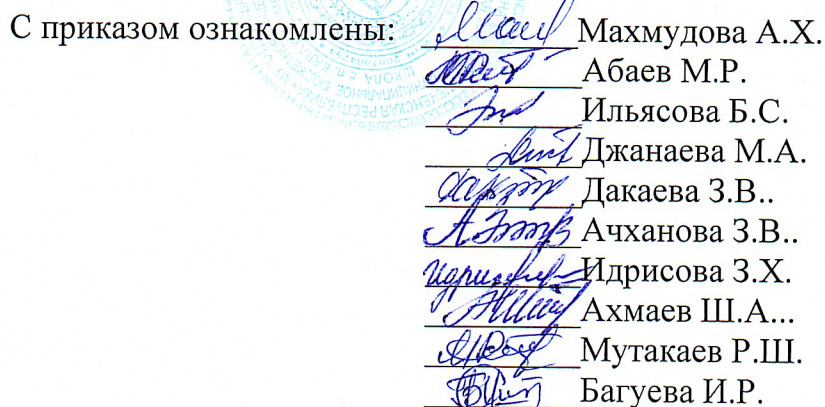 С приказом ознакомлены: Махмудова А.Х.
Абаев М.Р.
Ильясова Б.С.
Джанаева М.А.
Дакаева З.В..
Ачханова З.В..
Идрисова З.Х.
Ахмаев Ш.А...
Мутакаев Р.Ш.
Багуева И.Р.